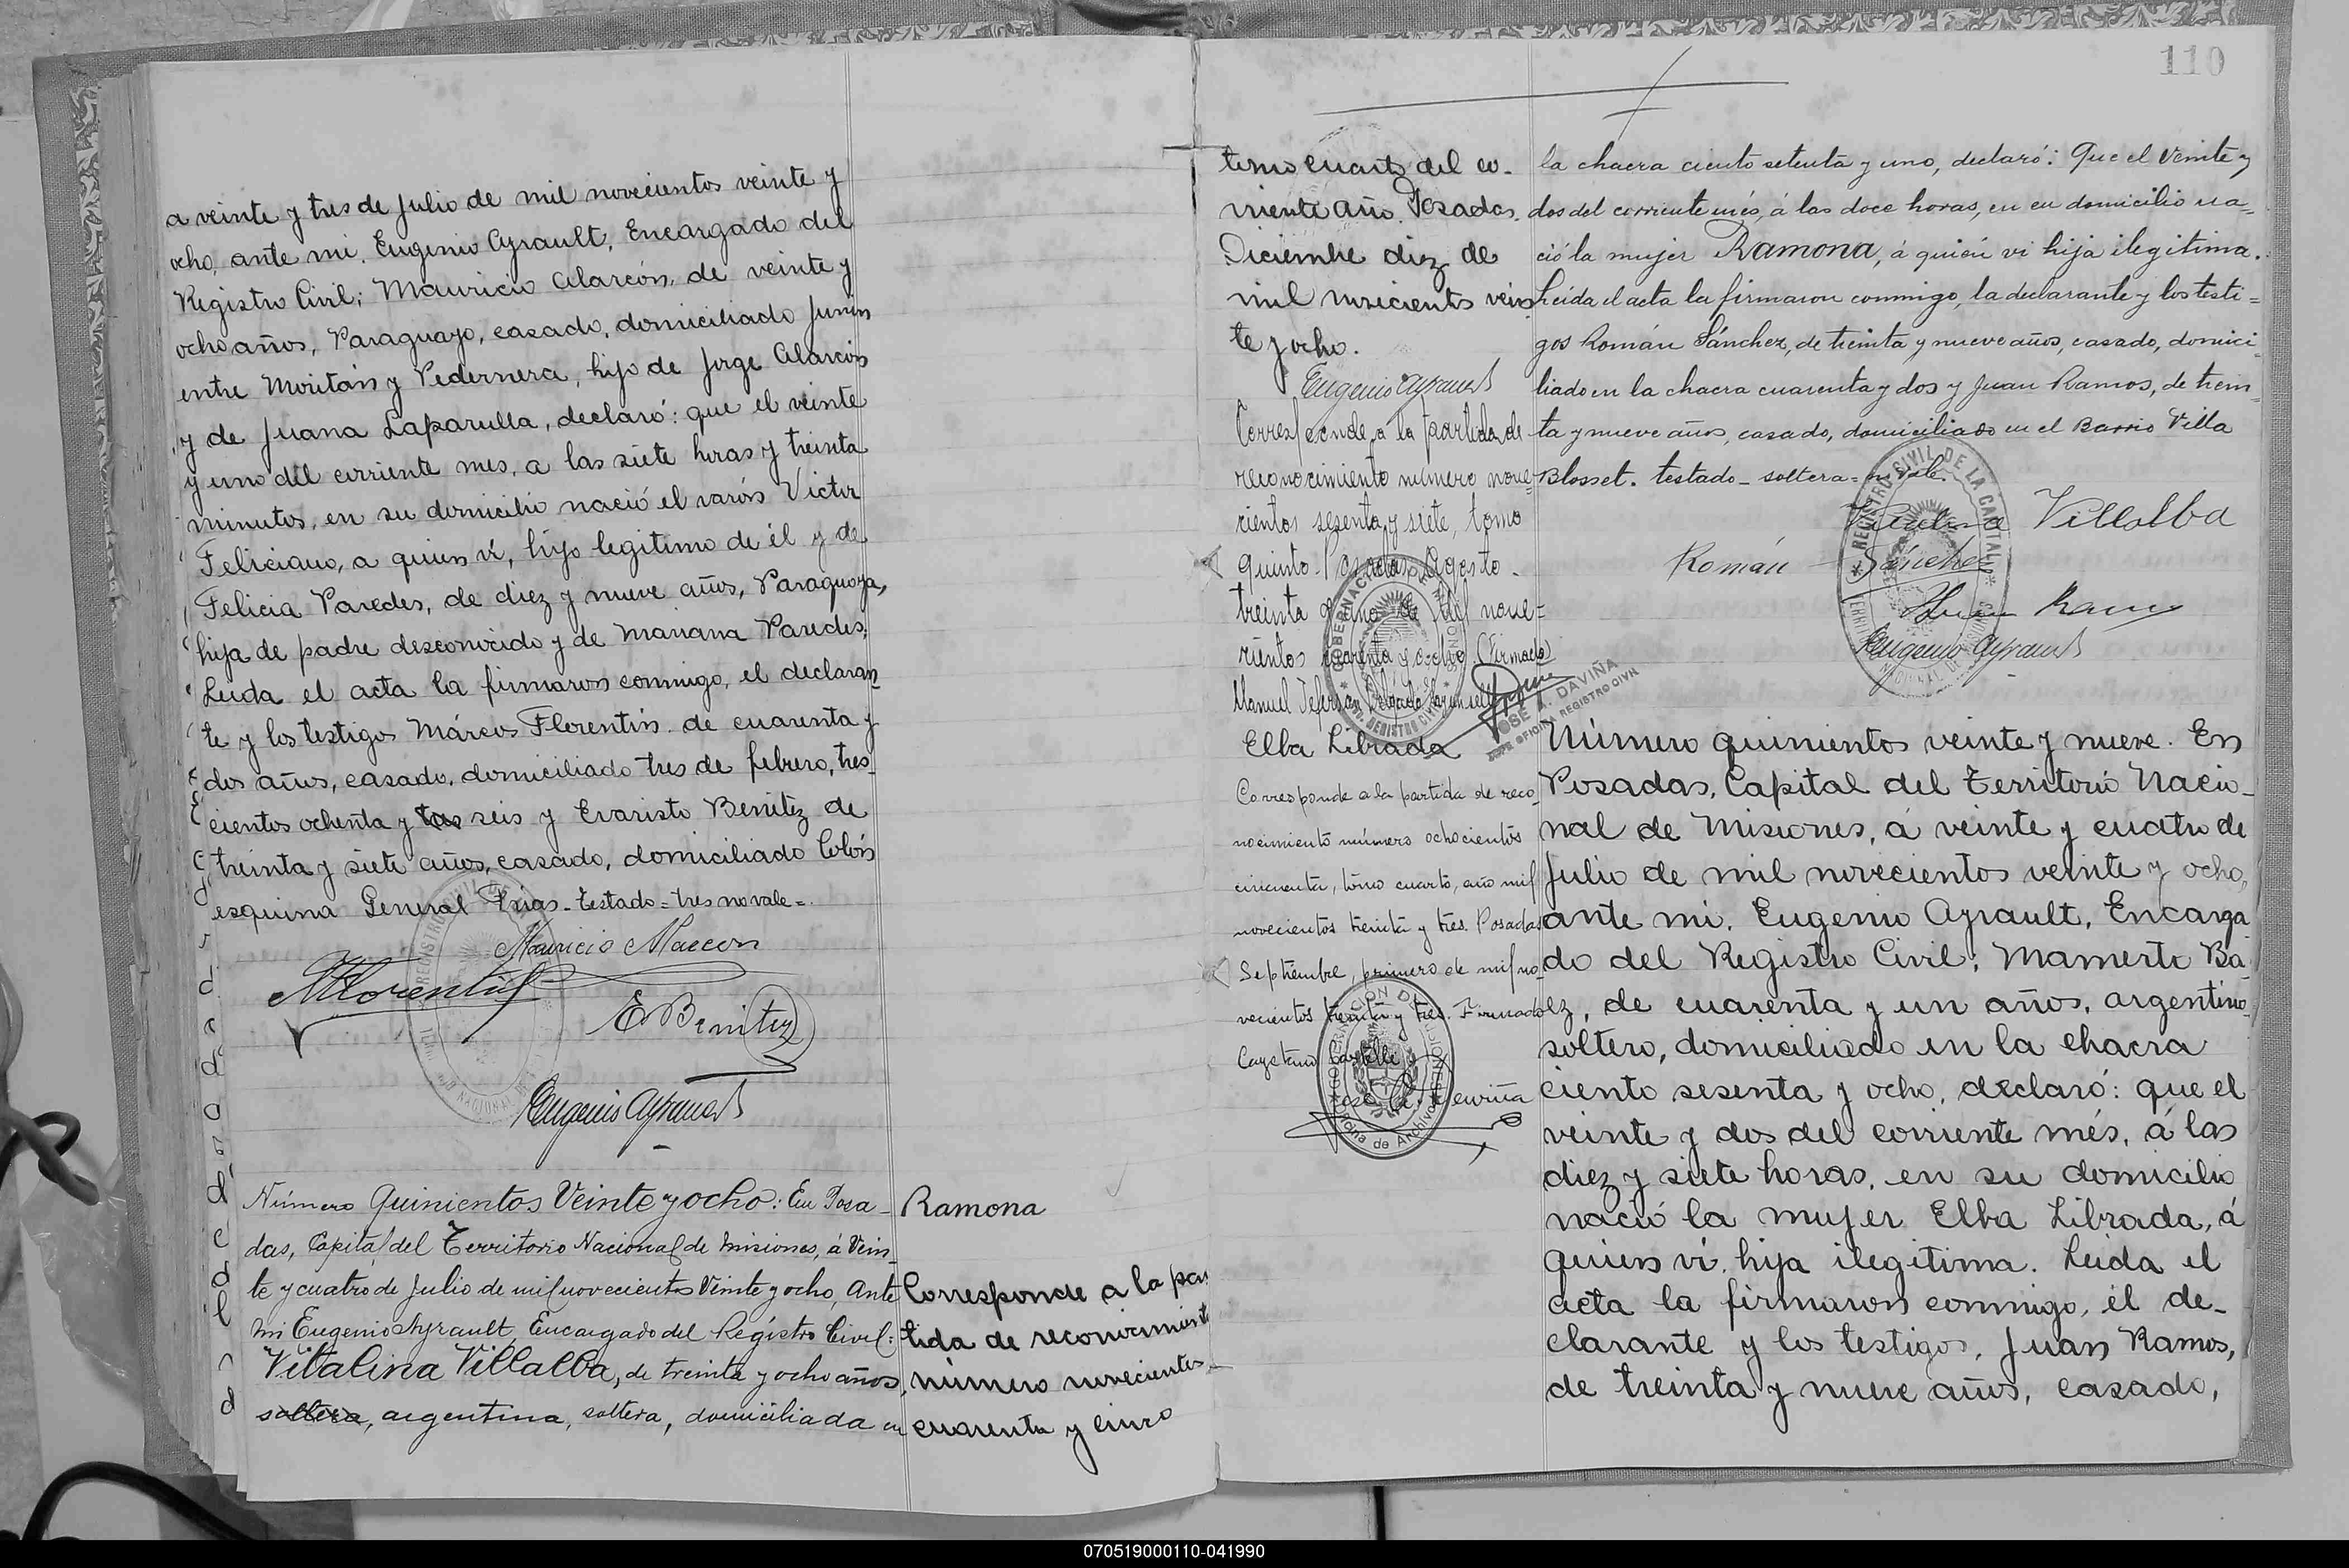 a veinte y tres de Julio de mil novecientos veinte y
ocho, ante mi, Eugenio Ayrault, Encargado del
Registro Civil; Mauricio Alarcón, de veinte y
ocho años, Paraguayo, casado, domiciliado Junin
entre Moritán y Pedernera, hijo de Jorge Alarcón
y de Juana Laparulla, declaró: que el veinte
y uno del corriente mes, a las siete horas y treinta
minutos, en su domicilio nació el varón Victor
Feliciano, a quien ví, hijo legitimo de él y de
Felicia Paredes, de diez y nueve años, Paraguaya,
hija de padre desconocido y de Mariana Paredes.
Leida el acta la firmaron conmigo, el declaran-
te y los testigos Márcos Florentín de cuarenta y
dos años, casado, domiciliado tres de febrero, tres-
cientos ochenta y tres seis y Evaristo Benitez de
treinta y siete años, casado, domiciliado Colón
esquina General Frias. Testado=tres no vale=.
Mauricio Alarcon
MFlorentín
E Benitez
Eugenio Ayrault
Número Quinientos Veinte y ocho: En Posa-
das, Capital del Territorio Nacional de Misiones, á Vein-
te y cuatro de Julio de mil novecientos Veinte y ocho, Ante
mi Eugenio Ayrault, Encargado del Registro Civil:
Vitalina Villalba, de treinta y ocho años,
soltera, argentina, soltera, domiciliada en
Ramona
Corresponde a la par
tida de reconocimiento
número novecientos
cuarenta y cinco
110
tomo cuarto del co-
rriente año Posadas.
Diciembre diez de
mil novecientos vein
te y ocho.
Eugenio Ayrault
Corresponde a la partida de
reconocimiento número nove-
cientos sesenta y siete, tomo
quinto. Posadas, Agosto
treinta y uno de mil nove-
cientos cuarenta y ocho (Firmado)
Manuel
JOSÉ A. DAVIÑA
JEFE OFICINA REGISTRO CIVIL
Elba Librada
Corresponde a la partida de reco-
nocimiento número ochocientos
cincuenta, tomo cuarto, año mil
novecientos treinta y tres. Posadas
Septiembre, primero de mil no-
vecientos treinta y tres. Firmado
Cayetano Castelli
José A. Daviña
la chacra ciento setenta y uno, declaró: Que el Veinte y
dos del corriente més, á las doce horas, en su domicilio na-
ció la mujer Ramona, á quién vi hija ilegitima.
Leida el acta la firmaron conmigo, la declarante y los testi-
gos Román Sánchez, de treinta y nueve años, casado, domici-
liado en la chacra cuarenta y dos y Juan Ramos, de trein-
ta y nueve años, casado, domiciliado en el Barrio Villa
Blosset. testado - soltera = no vale.
Vitalina Villalba
Román Sánchez
Juan Ramos
Eugenio Ayrault
REGISTRO CIVIL DE LA CAPITAL
Número quinientos veinte y nueve. En
Posadas, Capital del Territorio Nacio-
nal de Misiones, á veinte y cuatro de
Julio de mil novecientos veinte y ocho,
ante mi, Eugenio Ayrault, Encarga
do del Registro Civil; Mamerto Ba-
ez, de cuarenta y un años, argentino
soltero, domiciliado en la chacra
ciento sesenta y ocho, declaró: que el
veinte y dos del corriente més, á las
diez y siete horas, en su domicilio
nació la mujer Elba Librada, á
quien ví, hija ilegitima. Leida el
acta la firmaron conmigo, el de-
clarante y los testigos, Juan Ramos,
de treinta y nueve años, casado,
070519000110-041990